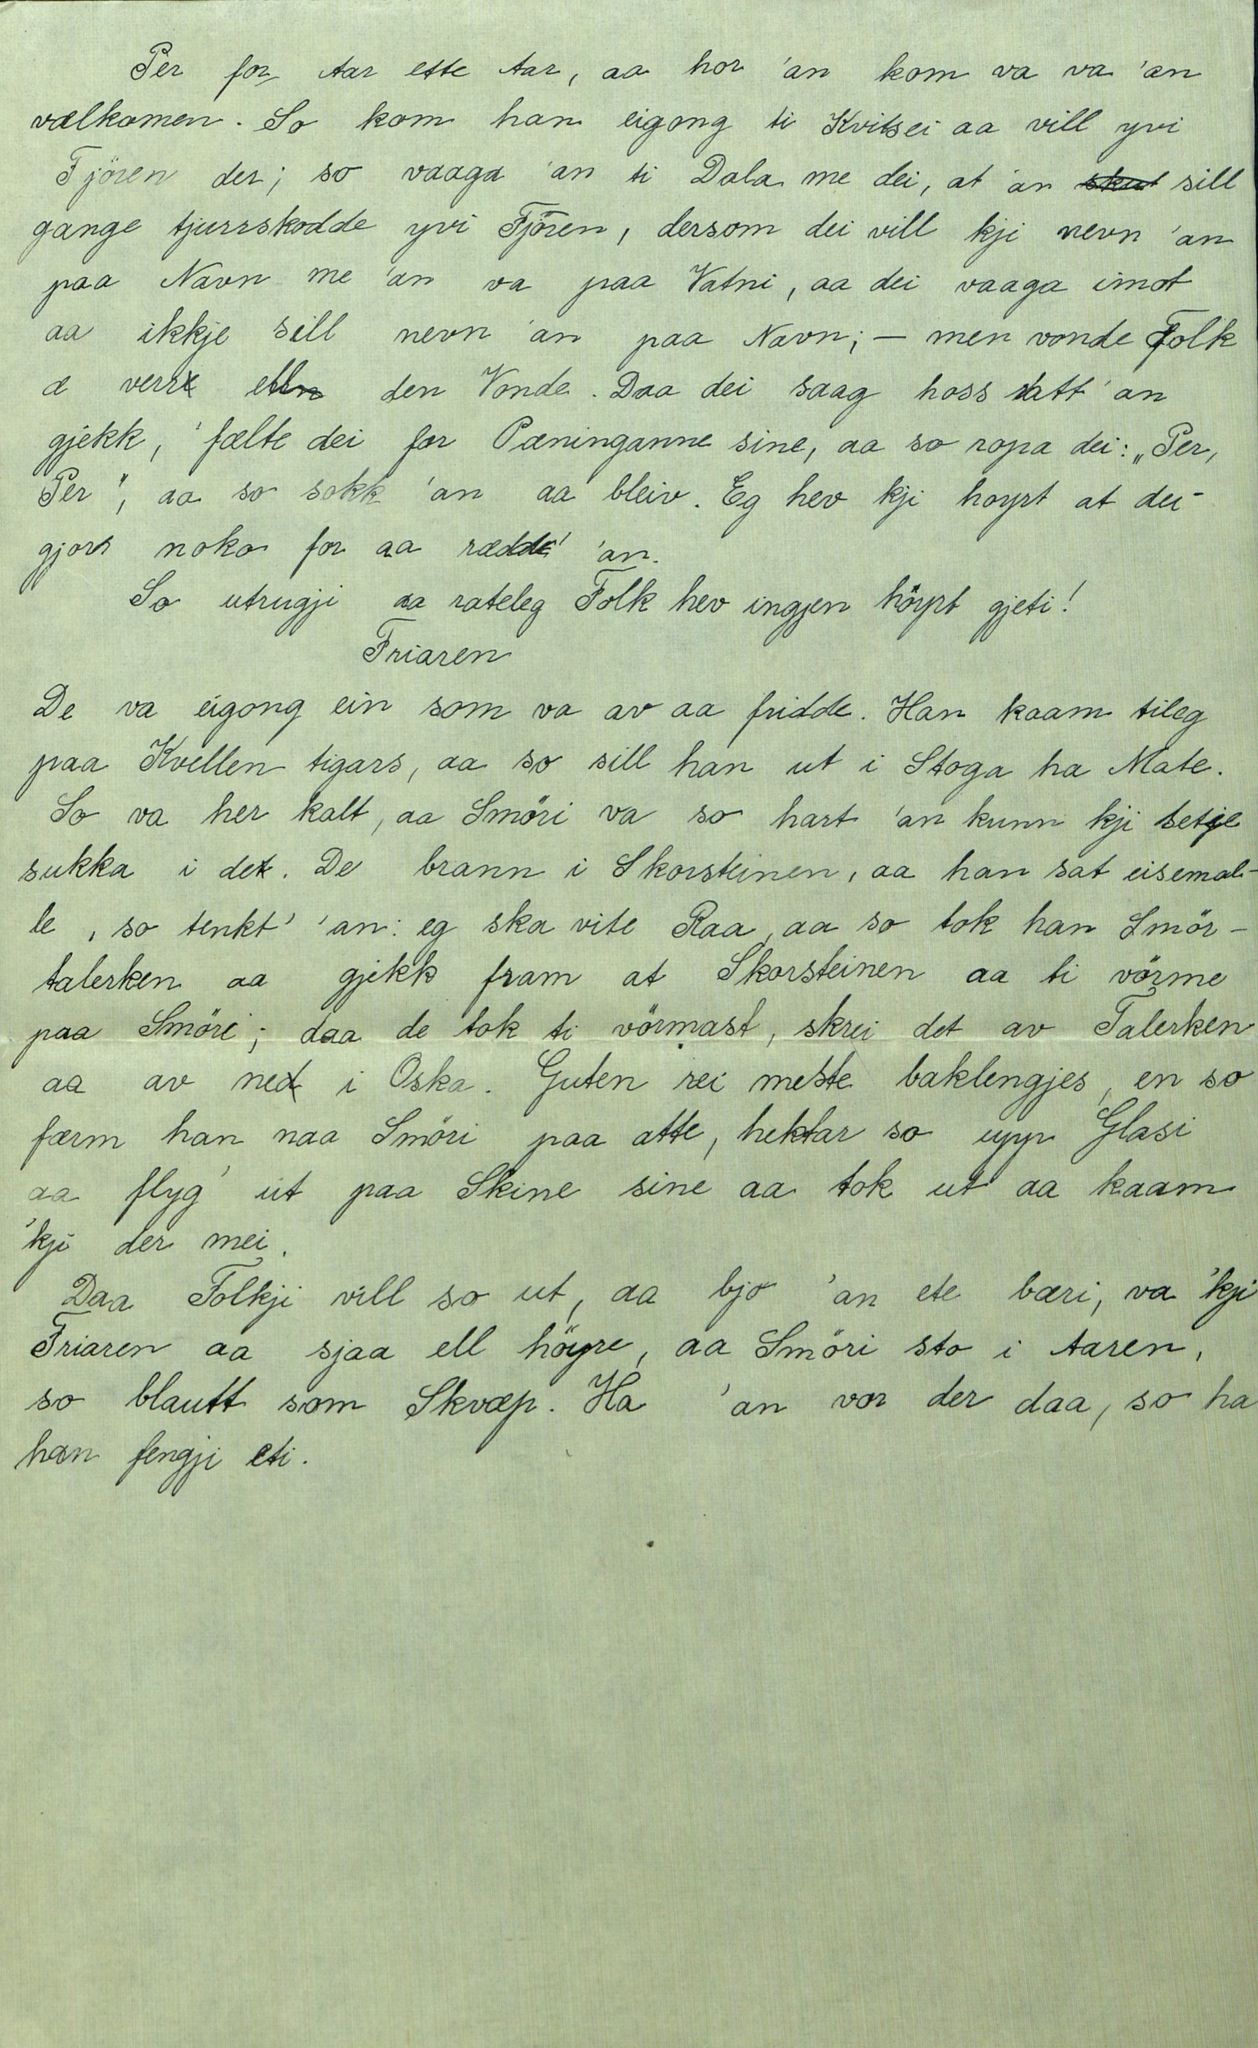 Per for Aar ette Aar, aa hor 'an kom va va 'an
vælkomen. So kom han eigong ti Kvitsei aa vill yvi
Fjören der; so vaaga 'an ti Dala me dei, at 'an sill
gange tjurrskodde yvi Fjören, dersom dei vill kji nevn 'an
paa Navn me 'an va paa Vatni, aa dei vaaga imot
aa ikkje sill nevn 'an paa Navn; — men vonde Folk
æ verre den Vonde. Daa dei saag hoss latt 'an
gjekk, fælte dei for Pæninganne sine, aa so ropa dei: „Per,
Per", aa so sokk 'an aa bleiv. Eg hev kji hoyrt at dei
gjors noko for aa rædde' 'an.
So utrugji aa rateleg Folk hev ingjen höyrt gjeti!
Friaren
De va eigong ein som va av aa fridde. Han kaam tileg
paa Kvellen tigars, aa so sill han ut i Stoga ha Mate.
So va her kalt, aa Smöri va so hart 'an kunn kji setje
sukka i det. De brann i Skorsteinen, aa han sat eisemal-
le, so tenkt' 'an: eg ska vite Raa, aa so tok han Smör-
talerken aa gjekk fram at Skorsteinen aa ti vörme
paa Smöri; daa de tok ti vörmast, skrei det av Talerken
aa av ned i Oska. Guten rei meste baklengjes, en so
færm han naa Smöri paa atte, hektar so upp Glasi
aa flyg' ut paa Skine sine aa tok ut aa kaam
'kji der mei.
Daa Folkji vill so ut, aa bjo 'an ete bæri, va 'kji
Friaren aa sjaa ell höyre, aa Smöri sto i Aaren,
so blautt som Skvæp. Ha 'an vor der daa, so ha
han fengji eti.